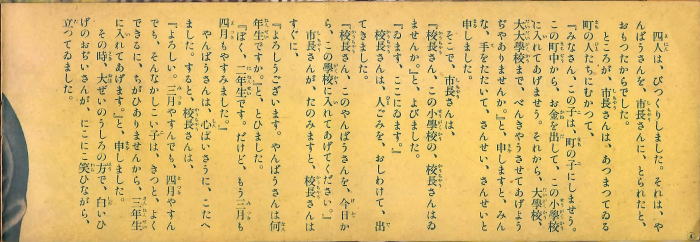 四人は、びつくりしました。それは、や
んぱうさんを、市長さんに、とられたと、
おもつたからでした。
ところが、市長さんは、あつまつてゐる
町の人たちにむかつて、
『みなさん、この子は、町の子にしませう。
この町中から、お金を出して、この小學校
に入れてあげませう。それから、大學校、
大大學校まで、べんきやうさせてあげよう
ぢやありませんか。』と、申しますと、みん
な、手をたたいて、さんせい、さんせいと
申しました。
そこで、市長さんは、
『校長さん、この小學校の、校長さんはゐ
ませんか。』と、よびました。
『ゐます、ここにゐます。』
校長さんは、人ごみを、おしわけて、出
てきました。
『校長さん、このやんぱうさんを、今日か
ら、この學校に入れてあげてください。』
市長さんが、たのみますと、校長さんは
すぐに、
『よろしうございます。やんぱうさんは何
年生ですか。』と、とひました。
『ぼく、二年生です。だけど、もう三月も
四月もやすみました。』
やんぱうさんは、心ぱいさうに、こたへ
ました。すると、校長さんは、
『よろしい。三月やすんでも、四月やすん
でも、そんなかしこい子は、きつと、よく
できるに、ちがひありませんから、三年生
に入れてあげます。』と、申しました。
その時、大ぜいのうしろの方で、白いひ
げのおぢいさんが、にこにこ笑ひながら、
立つてゐました。